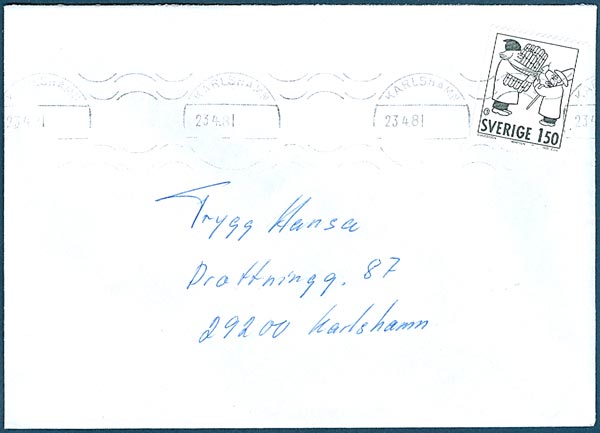 KARLSHAMN KARLSHAMN KARLSHAMN
23 4 81 23 4 81 23 4 81 23 4
SVERIGE 150
Trygg Hansa
Drottningg. 87
29200 Karlshamn